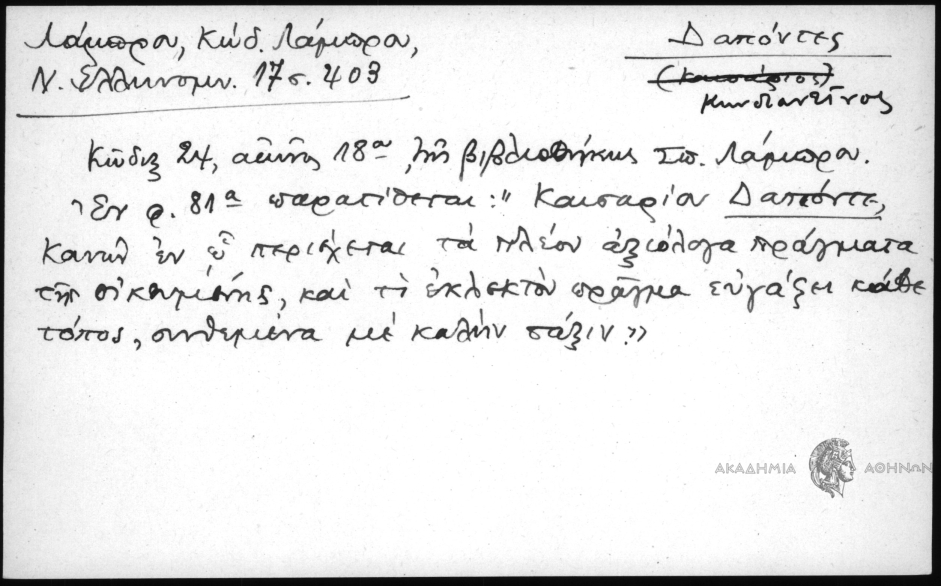 Λάμπρου, Κώδ. Λάμπρου,
Ν. Ἑλληνομν. 17 σ. 403
Δαπόντες
(Καισάριος)
Κωνσταντῖνος
Κῶδιξ 24, αἰῶνος 18ου, τῆς βιβλιοθήκης Σπ. Λάμπρου.
Ἐν φ. 81α παρατίθεται: " Καισαρίου Δαπόντε,
Κανὼν ἐν ᾧ περιέχεται τὰ πλέον ἀξιόλογα πράγματα
τῆς οἰκουμένης, καὶ τὶ ἐκλεκτὸν πρᾶγμα εὐγάζει κάθε
τόπος, συνθεμένα μὲ καλὴν τάξιν."
ΑΚΑΔΗΜΙΑ ΑΘΗΝΩΝ